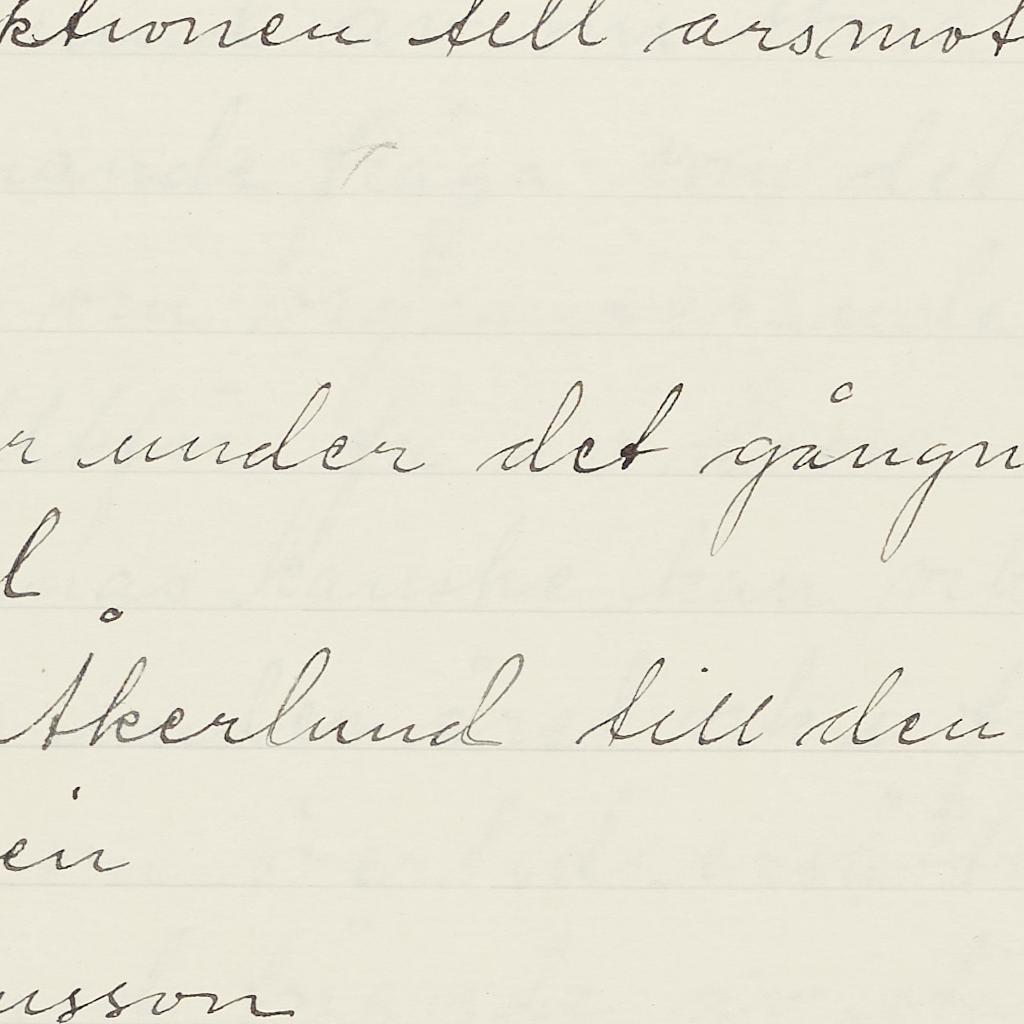 ktionen till årsmöt
r under det gångn
l
Åkerlund till den
ein
usson